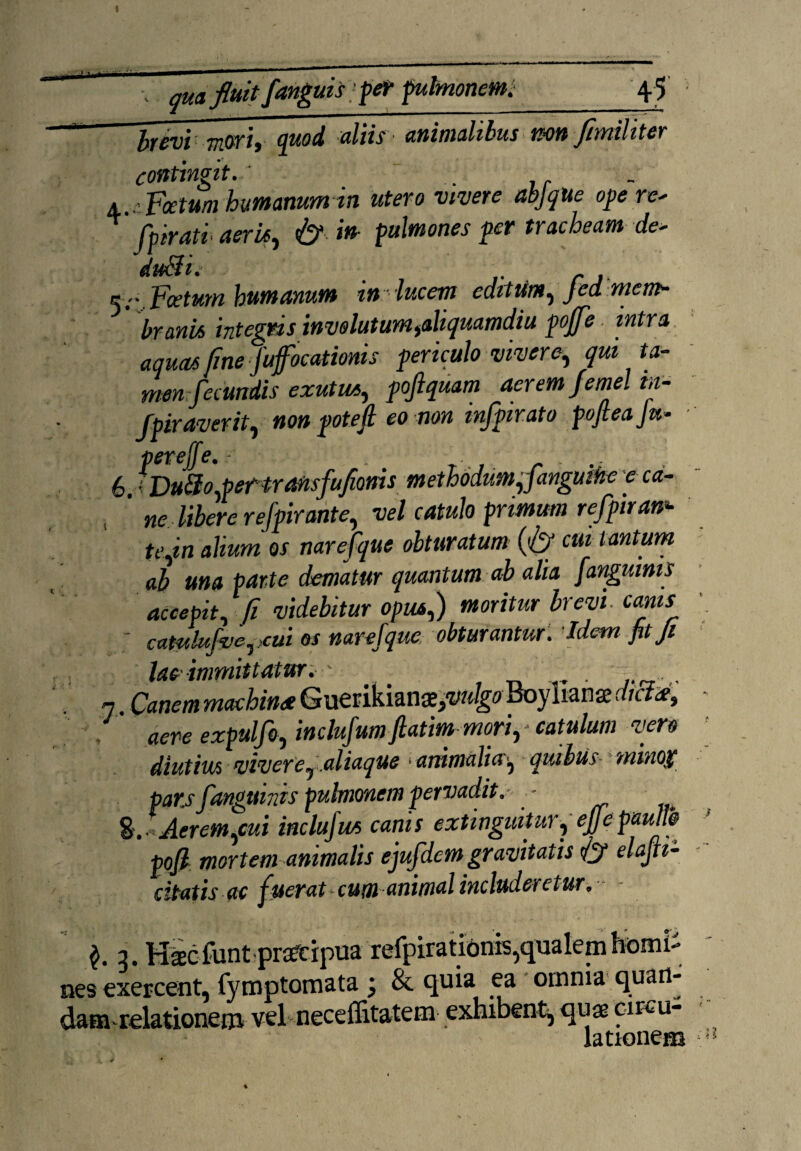 qua fluit ſanguis per pulmonem. 45
brevi mori, quod aliis animalibus non ſimiliter
contingit.
4. Fœtum humanum in utero vivere abſque ope re-
ſpirati aeris, & in pulmones per tracheam de-
ducti.
5. Fœtum humanum in lucem editum, ſed mem-
branis integris involutum, aliquamdiu poſſe intra
aquas ſine ſuffocationis periculo vivere, qui ta-
men ſecundis exutus, poſtquam aerem ſemel in-
ſpiraverit, non poteſt eo non inſpirato poſtea ſu-
pereſſe.
6. Ducto, per transfuſionis methodum, ſanguine e ca-
ne libere reſpirante, vel catulo primum reſpiran-
te, in alium os nareſque obturatum (& cui tantum
ab una parte dematur quantum ab alia ſanguinis
accepit, ſi videbitur opus,) moritur brevi canis
catuluſve, cui os nareſque obturantur. Idem fit ſi
lac immittatur.
7. Canem machinæ Guerikianæ, vulgo Boylianæ dictæ,
aere expulſo, incluſum ſtatim mori, catulum vero
diutius vivere, aliaque animalia, quibus minor
pars ſanguinis pulmonem pervadit.
8. Aerem, cui incluſus canis extinguitur, eſſe paullo
poſt mortem animalis ejuſdem gravitatis & elaſti-
citatis ac fuerat cum animal includeretur.
§. 3. Hæc ſunt præcipua reſpirationis, qualem homi-
nes exercent, ſymptomata; & quia ea omnia quan-
dam relationem vel neceſſitatem exhibent, quæ circu-
lationem